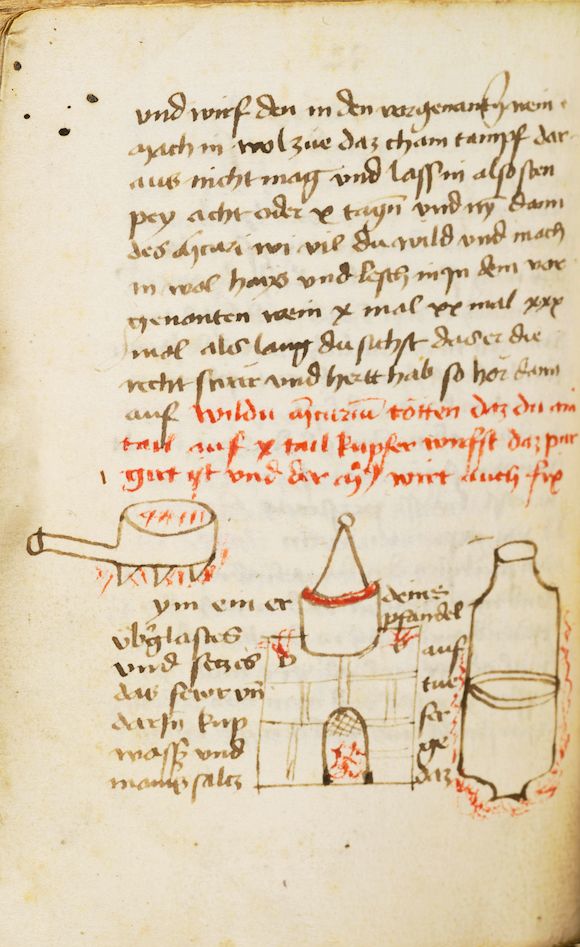 vnd wirf den in den vorgenanten wein
mach in wol zue daz chain tampf dar
aus nicht mag vnd lass in also sten
pey acht oder x tagn vnd nym dann
des mcuri wi vil du wild vnd mach
in wol hays vnd lesch in yn dem vor
genanten wein x mal xx mal xxx
mal als lang du sichst das er die
recht vnd hertt hab so hör dann
auf wildu mcurium totten daz du ain
tail auf x tail kupfer wirfst daz pur
girt ist vnd der wirt auch fix
ym ein er deins
vbglastes pfandel
vnd secz es auf
das fewr vn tue
darin kup fer
wassz vnd ge
mains saltz daz